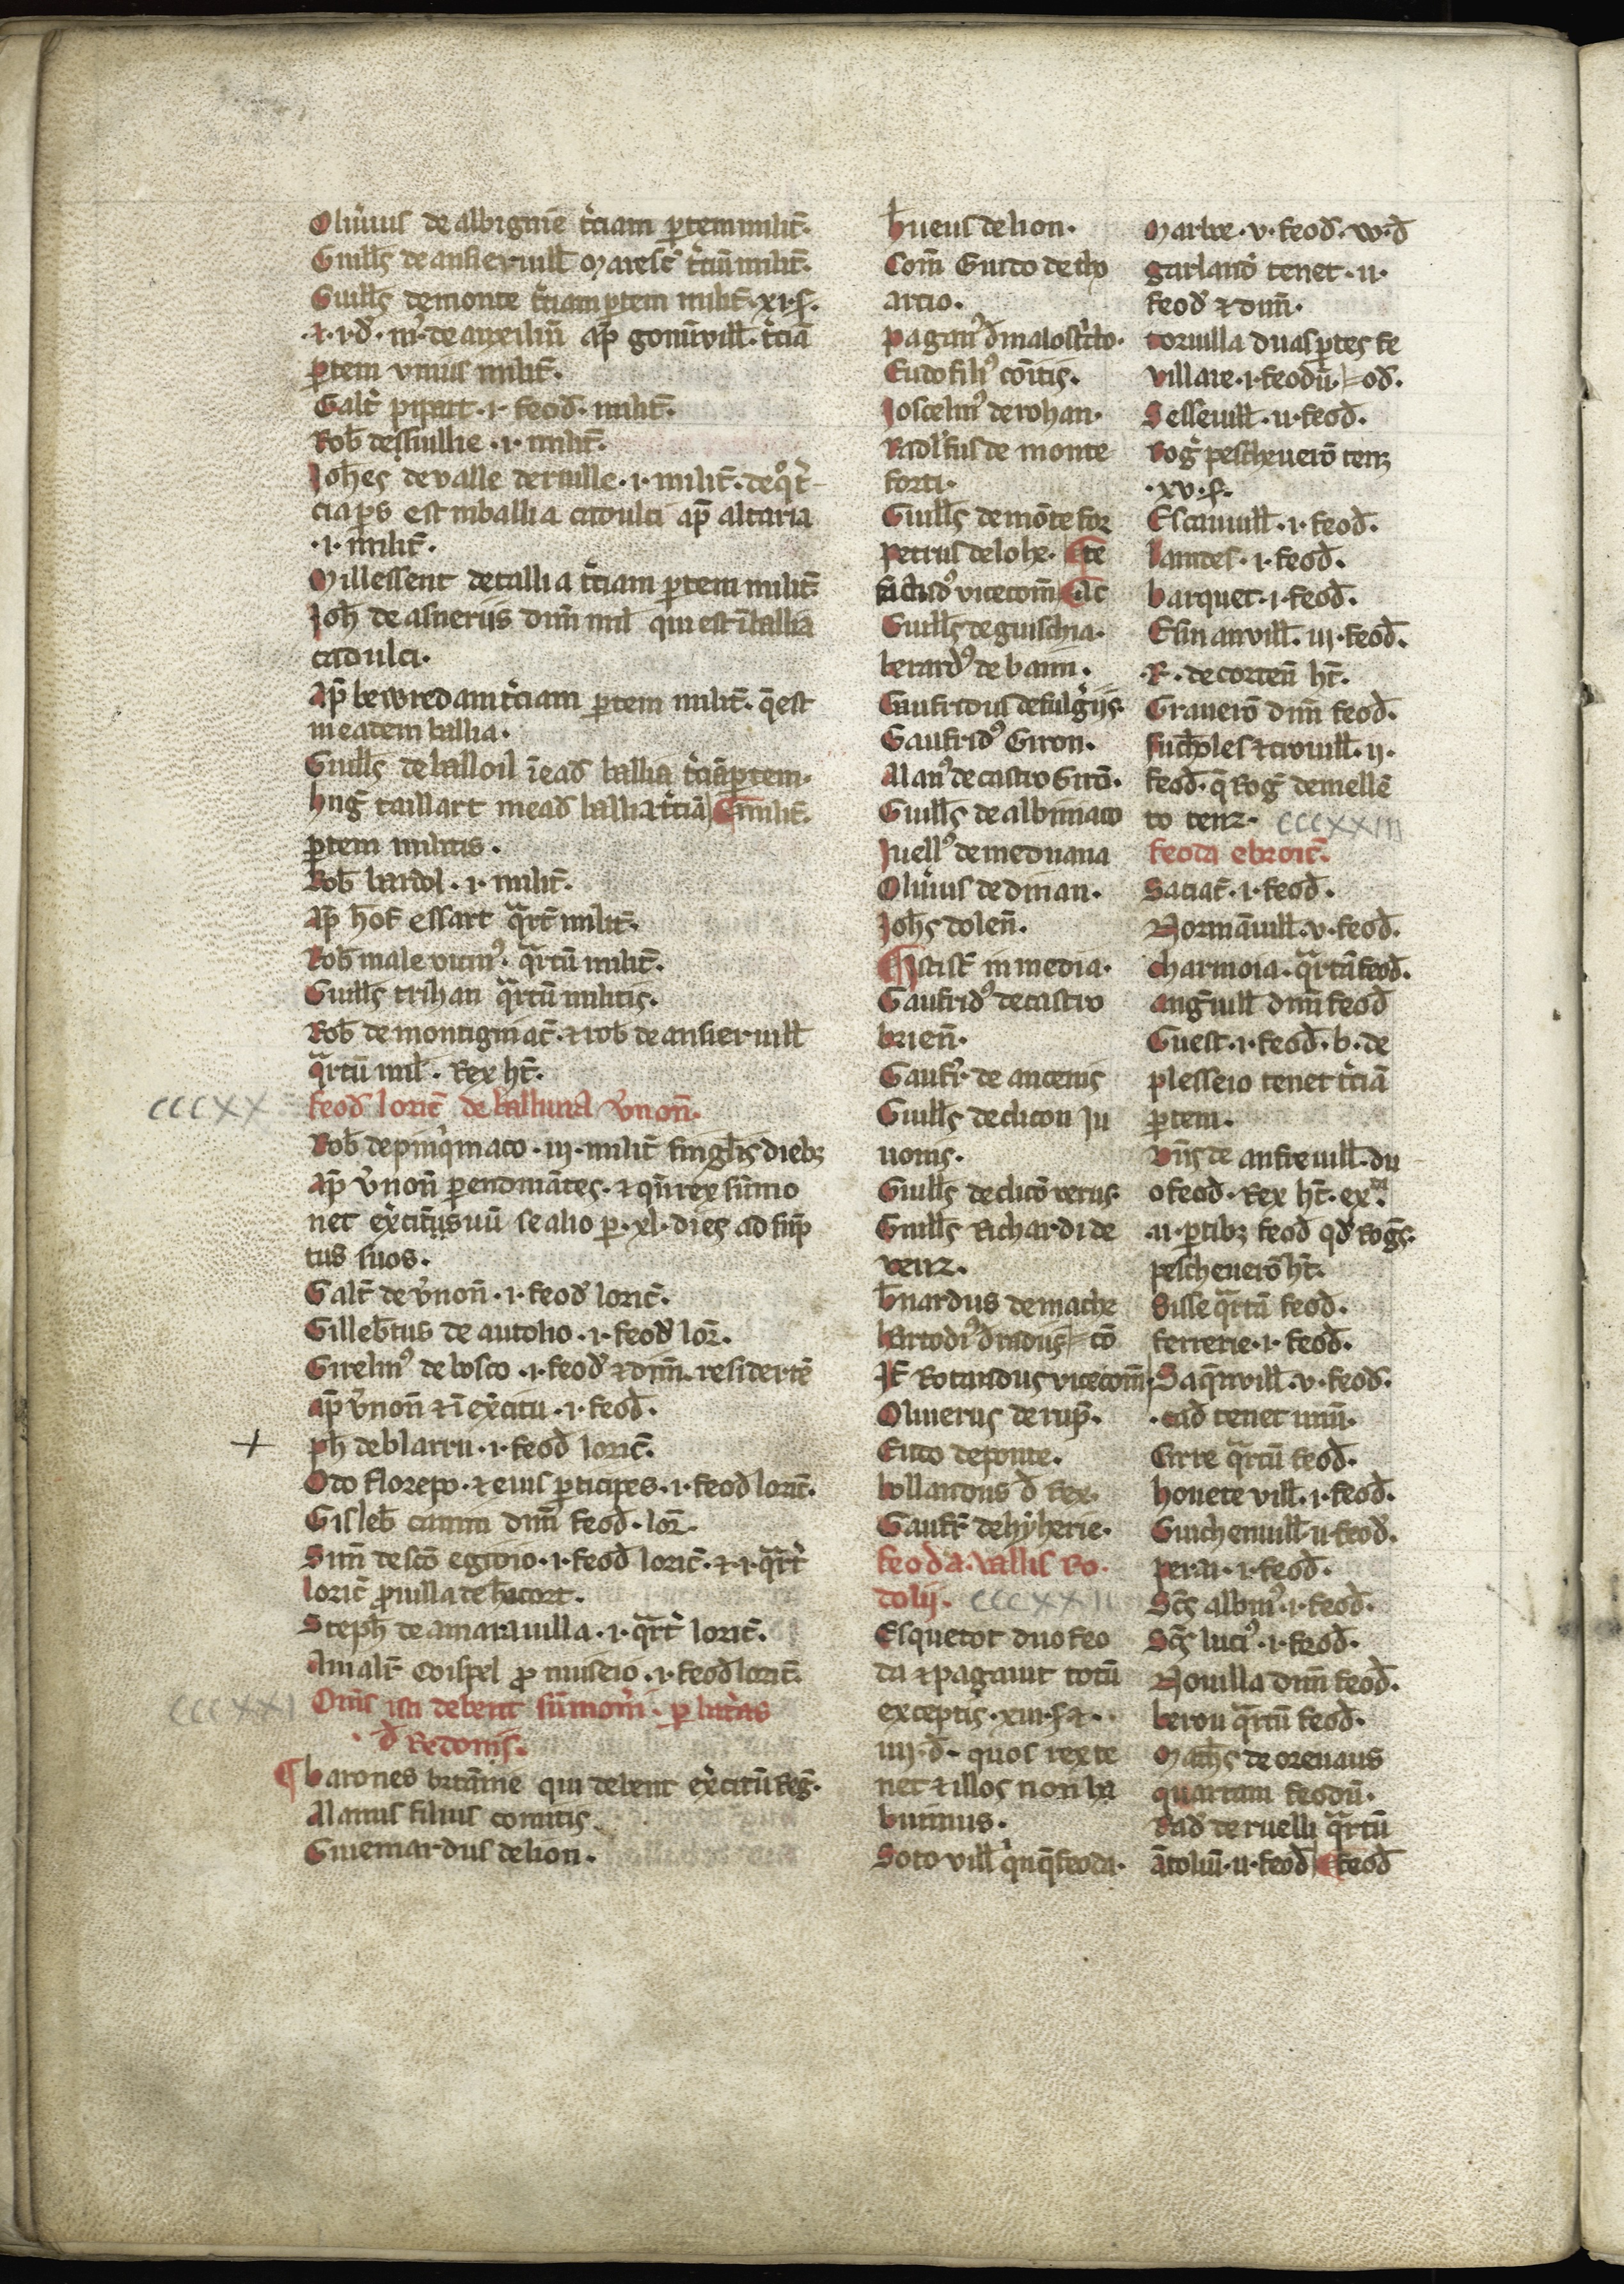 Oliũius de albignie t̃ciam ꝑtem milit̃.
Guill̃s de ansieruill̃ Maresc̃ t̃ciũ milit̃.
Guill̃s de monte t̃ciam ꝑtem milit̃. xi. s̃.
⁊ .i. d̃. m̃ de auxiliũ ap̃ gonũvill̃. t̃ciã
ꝑtem unius milit̃.
Galt̃ pipart .i. feod̃. milit̃.
Rob̃ desiuillie .i. milit̃.
Joh̃es de valle deruille .i. milit̃. de q̊ t̃
cia ps est in ballia cadulci ap̃ altaria
.i. milit̃.
Millessent de tallia t̃ciam ꝑtem milit̃
Joh̃ de asneriis dim̃ mil̃ qui est ĩ ballia
cadulci.
Ap̃ bewredam t̃ciam ꝑtem milit̃. q̃ est
in eadem ballia.
Guill̃s de balloil ĩ ead̃ ballia t̃ciã ꝑtem
hug̃ taillart in ead̃ ballia t̃ciã milit̃.
ꝑtem militis.
Rob̃ bardol .i. milit̃.
Ap̃ hot̃ essart qᵃrt̃ milit̃.
Rob̃ male vicin᾿. qᵃrtũ milit̃.
Guill̃s trihan qᵃrtũ militis.
Rob̃ de montigniac̃. ⁊ rob̃ de ansieruill̃
qᵃrtũ mil̃. Rex ht̃.
cccxx feod̃ loric̃ de balliuia ṽnon̄.
Rob̃ de pinq̃niaco .iii. milit̃ singl̃is dieb;
Ap̃ ṽnon̄ ꝑhendinãtes. ⁊ qñ rex sũmo
net ex̃citũ suũ se alio ꝑ .xl. dies ad sũp
tus suos.
Galt̃ de ṽnon̄ .i. feod̃ loric̃.
Gilleb̃tus de autolio .i. feod̃ lor̃.
Girelm᾿ de bosco .i. feod̃ ⁊ dim̃. residẽtẽ
ap̃ ṽnon̄ ⁊ ĩ ex̃citu .i. feod̃.
+ ph̃ de blarru .i. feod̃ loric̃.
Odo florepo. ⁊ eius ꝑticipes .i. feod̃ loric̃.
Gisleb̃ canim dim̃ feod̃. lor̃.
Sim̃ de sc̃o egidio .i. feod̃ loric̃. ⁊ .i. qᵃrt̃
loric̃ ꝓ uilla de hacort.
Steph̃ de amarauilla .i. qᵃrt̃ loric̃.
Amalr̃ Coispel ꝓ muscio .i. feod̃ loric̃.
cccxxi Om̃s isti debent sũmoñi ꝑ litt̃as
d̃ Redonis.
¶ barones britãnie qui debent ex̃citũ reg̃.
Alanus filius comitis.
Guiemardus de lion.
heueus de lion.
Com̃ Guido de tho
arcio.
Pagan᾿ d̃ malost̃cto.
Eudo fili᾿ cõitis.
Joscelin᾿ de rohan.
Radl̃fus de monte
forti.
Guill̃s de mõte for
Petrus de lohe. ¶ te
vicecom̃
Guill̃s de guischia.
berard᾿ de
Gaufridus de fulg̃iis.
Gaufrid᾿ Giron.
Alan᾿ de castro Girõ.
Guill̃s de albiniaco
Juell᾿ de meduana
Oliũius de dinan.
Joh̃s dolen̄.
¶ Isti st̃ in media.
Gaufrid᾿ de castro
brien̄.
Gaufr̃ de ancenis
Guill̃s de clicon Ju
uonis.
Guill̃s de clicõ uetus.
Guill̃s Richardi de
b̃nardus de mache
cõ
Rotaudus vicecom̃
Oliuerus de rup̃.
Eudo de ponte.
Gaufr̃ de hyherie.
feoda. vallis Ro
dolii. cccxxii
Esquetot duo feo
da ⁊ pagauit totũ
exceptis .xiii. s̃ ⁊.
iiii. d̃. quos rex te
net ⁊ illos non ha
buimus.
Soto vill̃ q̃nq̃ feoda.
Marbre .v. feod̃. w. d̃
garland̃ tenet .ii.
feod̃ ⁊ dim̃.
toruilla duas ꝑtes fe
villare .i. feodũ. od̃.
Sesseuill̃ .ii. feod̃.
Rog̃ pescheuerõ tenꝫ
.xv. s̃.
Escauuill̃ .i. feod̃.
Landes .i. feod̃.
barquet .i. feod̃.
Esinanvill̃. iii. feod̃.
R. de corten̄ ht̃.
Grauerõ dim̃ feod̃.
sucholes ⁊ crouill̃. ii.
feod̃. q̃ Rog̃ de mellẽ
to tenꝫ. cccxxiii
feoda ebroic̃.
Saciac̃ .i. feod̃.
Normãuill̃. v. feod̃.
charmoia. qᵃrtũ feod̃.
ang̃uill̃ dim̃ feod̃
Guest .i. feod̃. b. de
plesseio tenet t̃ciã
ꝑtem.
de anfreuill̃. du
o feod̃. Rex ht̃. exᵗᵃ
.ii. ꝑtib; feod̃ qd̃ Rog̃s.
pescheuerõ ht̃.
Sisse qᵃrtũ feod̃.
ferrerie .i. feod̃.
Saq̃nvill̃ .v. feod̃.
cad̃ tenet unũ.
Cirre qᵃrtũ feod̃.
houete vill̃. i. feod̃.
Guichenuill̃ .ii. feod̃.
perai .i. feod̃.
Sc̃s albin᾿ .i. feod̃.
Sc̃s luci᾿ .i. feod̃.
Nouilla dim̃ feod̃.
berou qᵃrtũ feod̃.
Math̃s de oreuaus
quartum feodũ.
Rad̃ de ruelli qᵃrtũ
ãtoliũ .ii. feod̃ ¶ feod̃